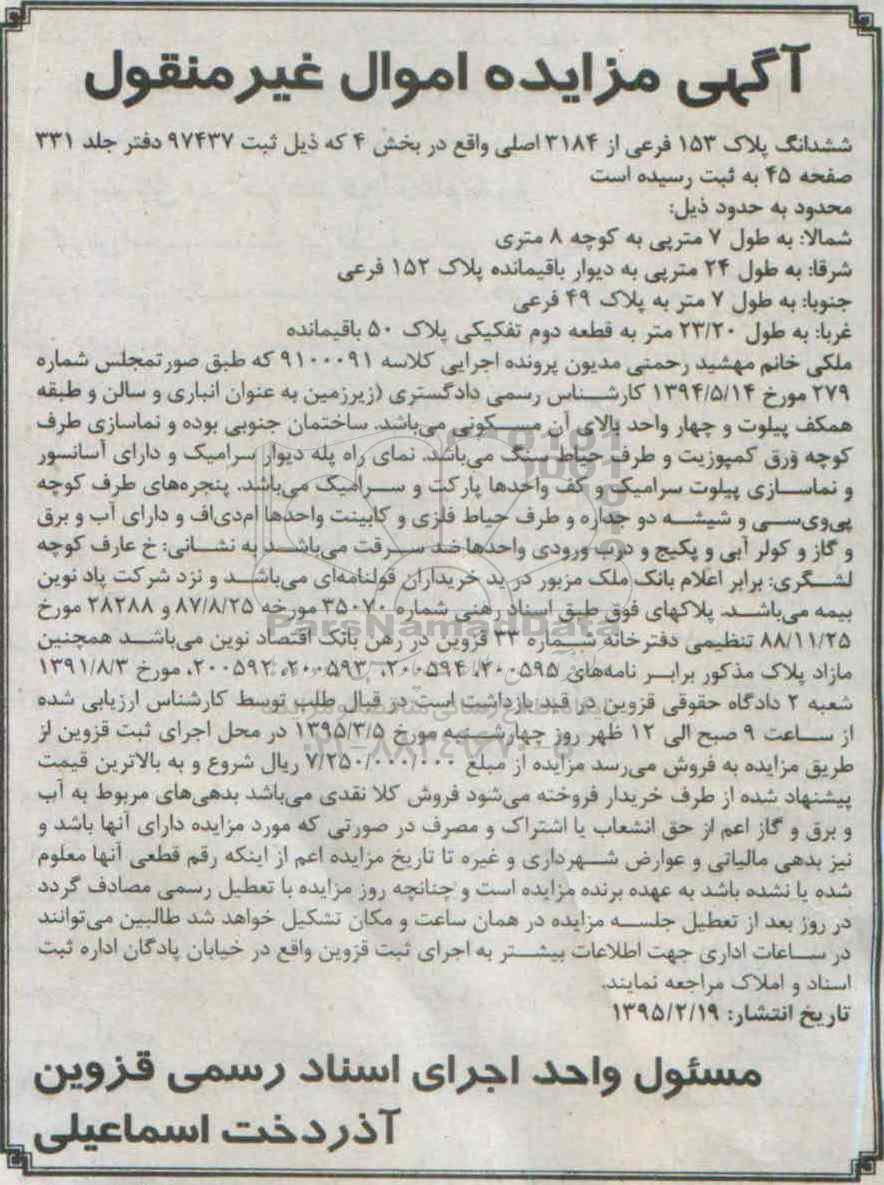 آگهی مزایده اموال غیرمنقول
ششدانگ پلاک ۱۵۳ فرعی از ۳۱۸۴ اصلی واقع در بخش ۴ که ذیل ثبت ۹۷۴۳۷ دفتر جلد ۳۳۱
صفحه ۴۵ به ثبت رسیده است
محدود به حدود ذیل:
شمالا: به طول ۷ متریی به کوچه ۸ متری
شرقا: به طول ۲۴ متریی به دیوار باقیمانده پلاک ۱۵۲ فرعی
جنوبا: به طول ۷ متر به پلاک ۴۹ فرعی
غربا: به طول ۲۳/۲۰ متر به قطعه دوم تفکیکی پلاک ۵۰ باقیمانده
ملکی خانم مهشید رحمتی مدیون پرونده اجرایی کلاسه ۹۱۰۰۰۹۱ که طبق صورتمجلس شماره
۲۷۹ مورخ ۱۳۹۴/۵/۱۴ کارشناس رسمی دادگستری (زیرزمین به عنوان انباری و سالن و طبقه
همکف پیلوت و چهار واحد بالای آن مسکونی می‌باشد. ساختمان جنوبی بوده و نماسازی طرف
کوچه ورق کمپوزیت و طرف حیاط سنگ می‌باشد. نمای راه پله دیوار سرامیک و دارای آسانسور
و نماسازی پیلوت سرامیک و کف واحدها پارکت و سرامیک می‌باشد. پنجره‌های طرف کوچه
پی‌وی‌سی و شیشه دو جداره و طرف حیاط فلزی و کابینت واحدها ام‌دی‌اف و دارای آب و برق
و گاز و کولر آبی و پکیج و درب ورودی واحدها ضد سرقت می‌باشد به نشانی: خ عارف کوچه
لشگری: برابر اعلام بانک ملک مزبور در ید خریداران قولنامه‌ای می‌باشد و نزد شرکت پاد نوین
بیمه می‌باشد. پلاکهای فوق طبق اسناد رهنی شماره ۳۵۰۷۰ مورخه ۸۷/۸/۲۵ و ۲۸۲۸۸ مورخ
۸۸/۱۱/۲۵ تنظیمی دفترخانه شماره ۳۳ قزوین در رهن بانک اقتصاد نوین می‌باشد همچنین
مازاد پلاک مذکور برابر نامه‌های ۲۰۰۵۹۵، ۲۰۰۵۹۴، ۲۰۰۵۹۳، ۲۰۰۵۹۲، مورخ ۱۳۹۱/۸/۳
شعبه ۲ دادگاه حقوقی قزوین در قید بازداشت است در قبال طلب توسط کارشناس ارزیابی شده
از ساعت ۹ صبح الی ۱۲ ظهر روز چهارشنبه مورخ ۱۳۹۵/۳/۵ در محل اجرای ثبت قزوین از
طریق مزایده به فروش می‌رسد مزایده از مبلغ ۷/۲۵۰/۰۰۰/۰۰۰ ریال شروع و به بالاترین قیمت
پیشنهاد شده از طرف خریدار فروخته می‌شود فروش کلا نقدی می‌باشد بدهی‌های مربوط به آب
و برق و گاز اعم از حق انشعاب یا اشتراک و مصرف در صورتی که مورد مزایده دارای آنها باشد و
نیز بدهی مالیاتی و عوارض شهرداری و غیره تا تاریخ مزایده اعم از اینکه رقم قطعی آنها معلوم
شده یا نشده باشد به عهده برنده مزایده است و چنانچه روز مزایده با تعطیل رسمی مصادف گردد
در روز بعد از تعطیل جلسه مزایده در همان ساعت و مکان تشکیل خواهد شد طالبین می‌توانند
در ساعات اداری جهت اطلاعات بیشتر به اجرای ثبت قزوین واقع در خیابان پادگان اداره ثبت
اسناد و املاک مراجعه نمایند.
تاریخ انتشار: ۱۳۹۵/۲/۱۹
مسئول واحد اجرای اسناد رسمی قزوین
آذردخت اسماعیلی
ParsNamadData